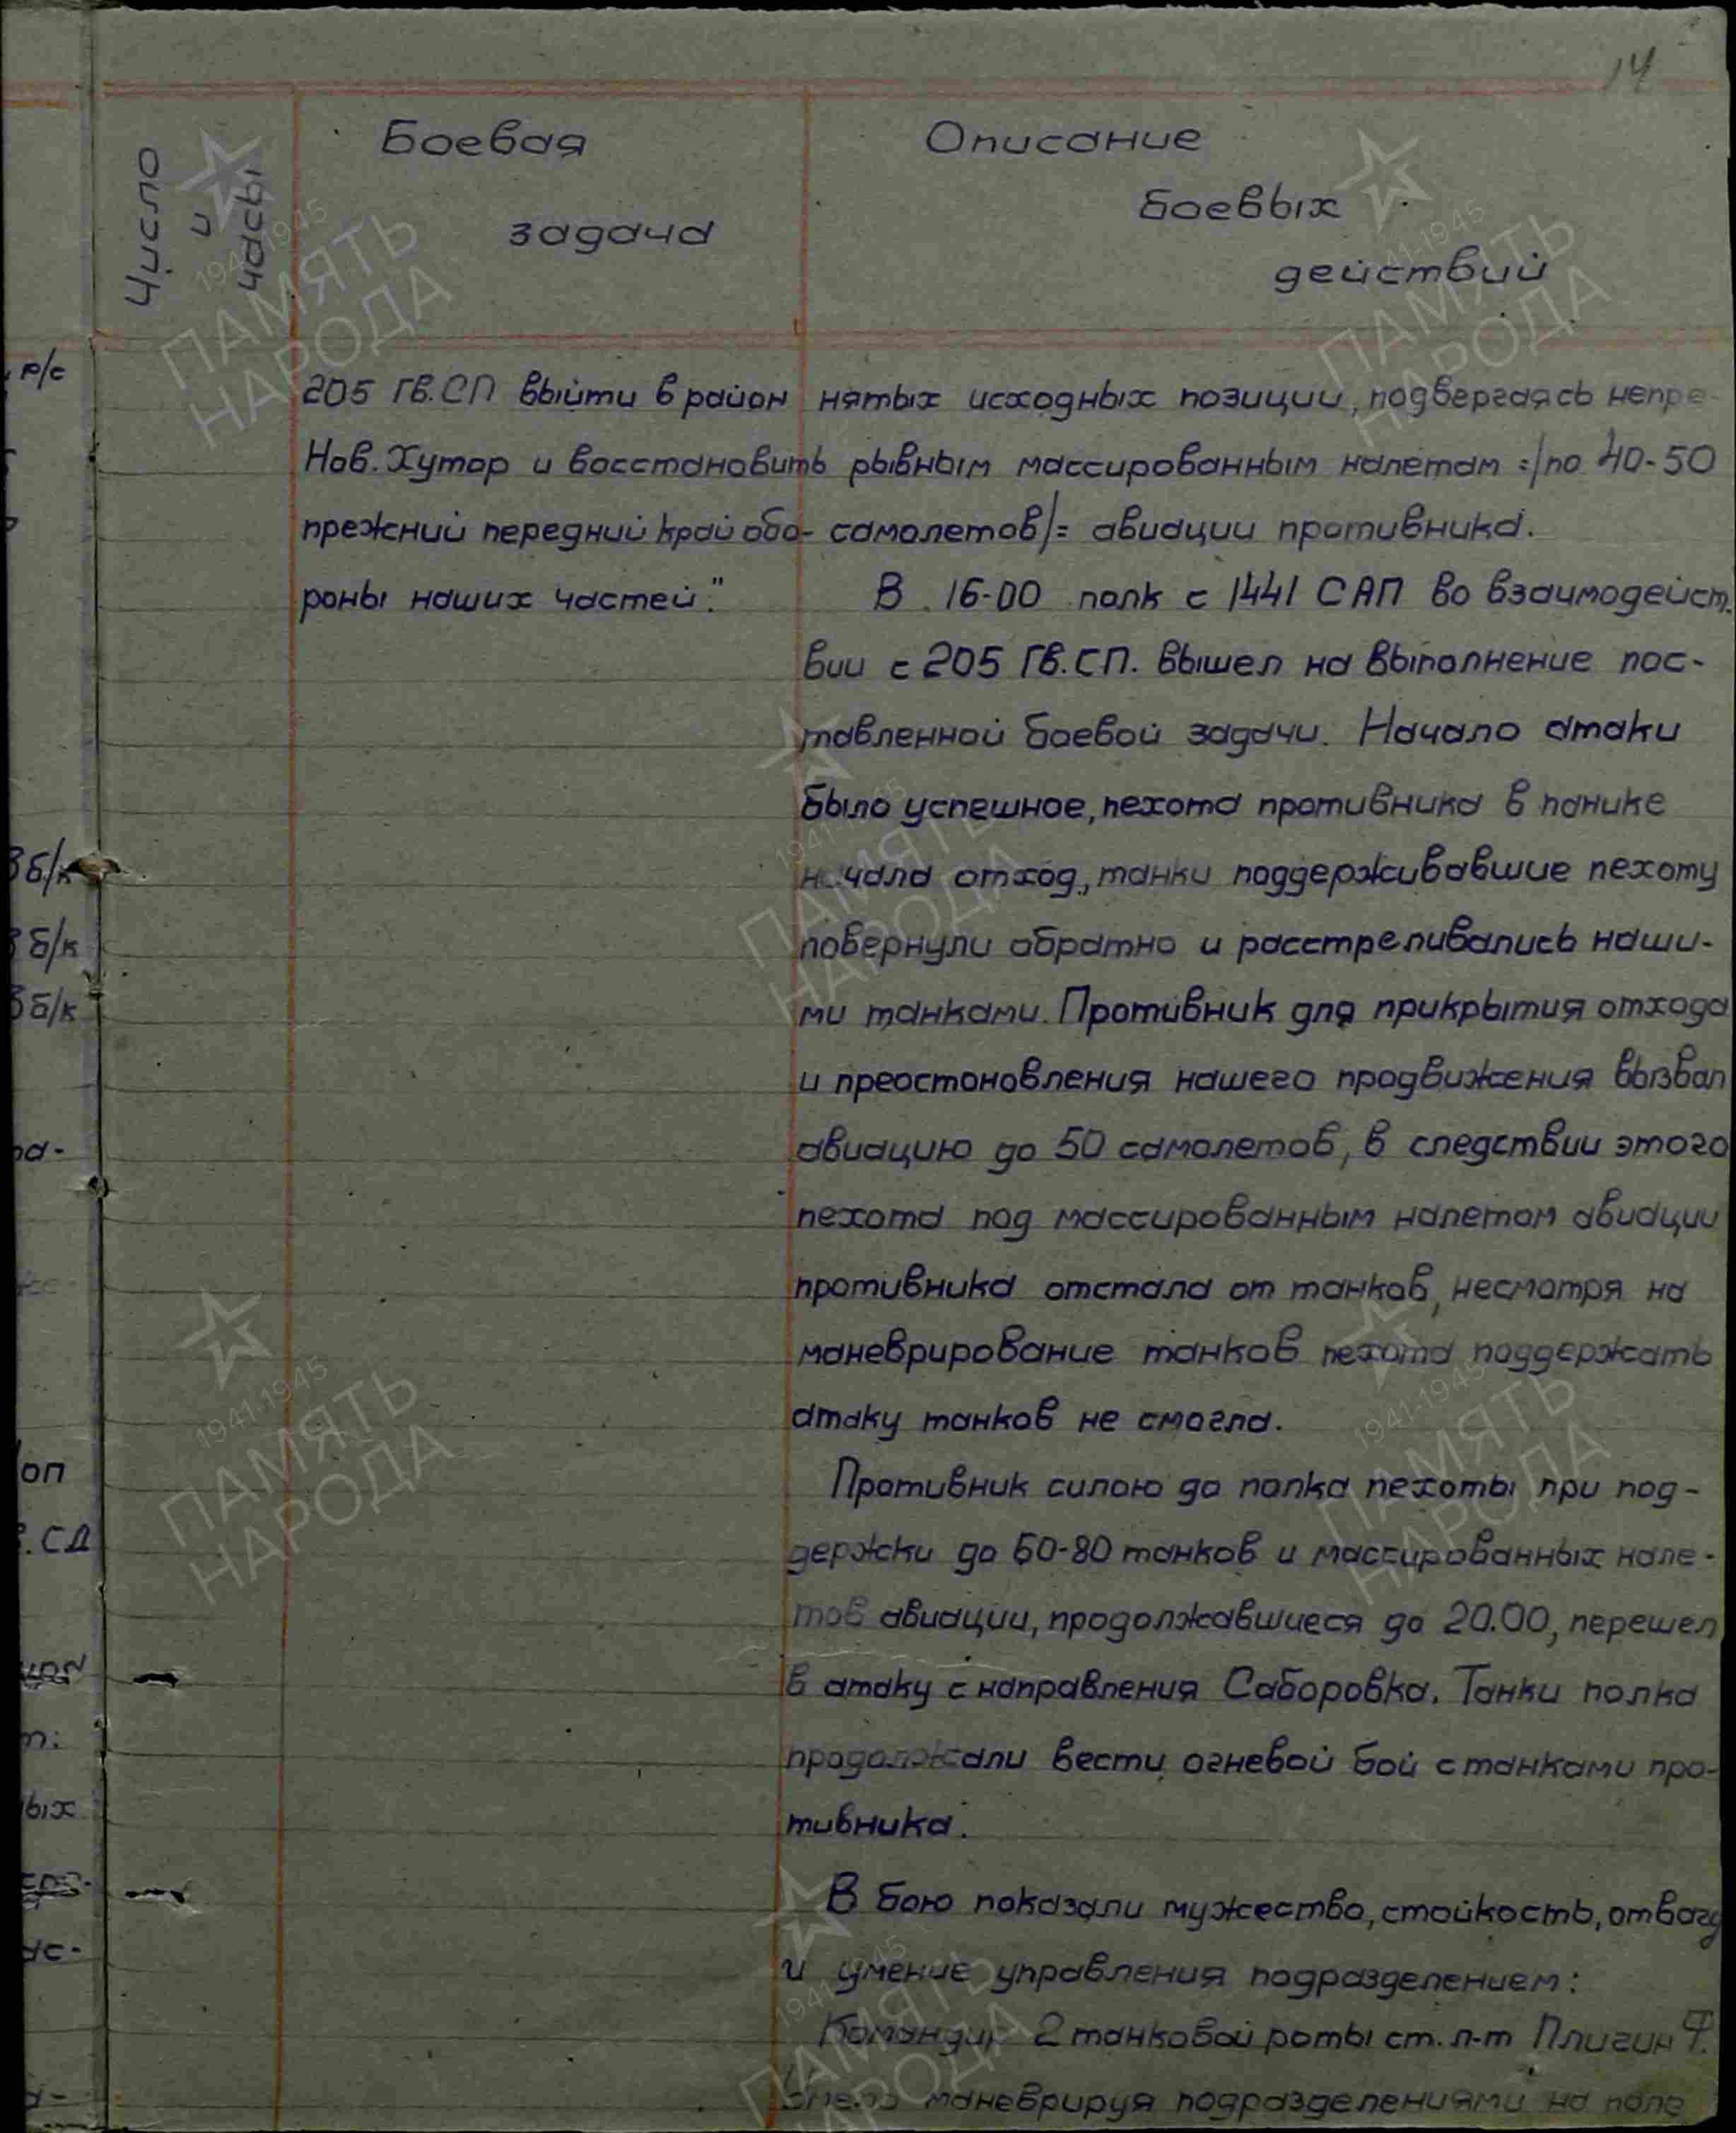 14
Число
и
часы
Боевая
задача
Описание
боевых
действий
205 Гв.СП выйти в район
Нов. Хутор и восстановить
прежний передний край обо-
роны наших частей."
нятых исходных позиции, подвергаясь непре-
рывным массированным налетам =/по 40-50
самолетов/= авиации противника.
В 16-00 полк с 1441 САП во взаимодейст-
вии с 205 Гв.СП. вышел на выполнение пос-
тавленной боевой задачи. Начало атаки
было успешное, пехота противника в панике
начала отход, танки поддерживавшие пехоту
повернули обратно и расстреливались наши-
ми танками. Противник для прикрытия отхода
и преостоновления нашего продвижения вызвал
авиацию до 50 самолетов, в следствии этого
пехота под массированным налетом авиации
противника отстала от танков, несмотря на
маневрирование танков пехота поддержать
атаку танков не смогла.
Противник силою до полка пехоты при под-
держки до 60-80 танков и массированных нале-
тов авиации, продолжавшиеся до 20.00, перешел
в атаку с направления Саборовка. Танки полка
продолжали вести огневой бой с танками про-
тивника.
В бою показали мужество, стойкость, отвагу
и умение управления подразделением:
Командир 2 танковой роты ст. л-т Плигин Ф.
смело маневрируя подразделениями на поле
р/с
б/к
б/к
б/к
оп
. СД
ых
1941-1945
ПАМЯТЬ
НАРОДА
1941-1945
ПАМЯТЬ
НАРОДА
1941-1945
ПАМЯТЬ
НАРОДА
1941-1945
ПАМЯТЬ
НАРОДА
1941-1945
ПАМЯТЬ
НАРОДА
1941-1945
ПАМЯТЬ
НАРОДА